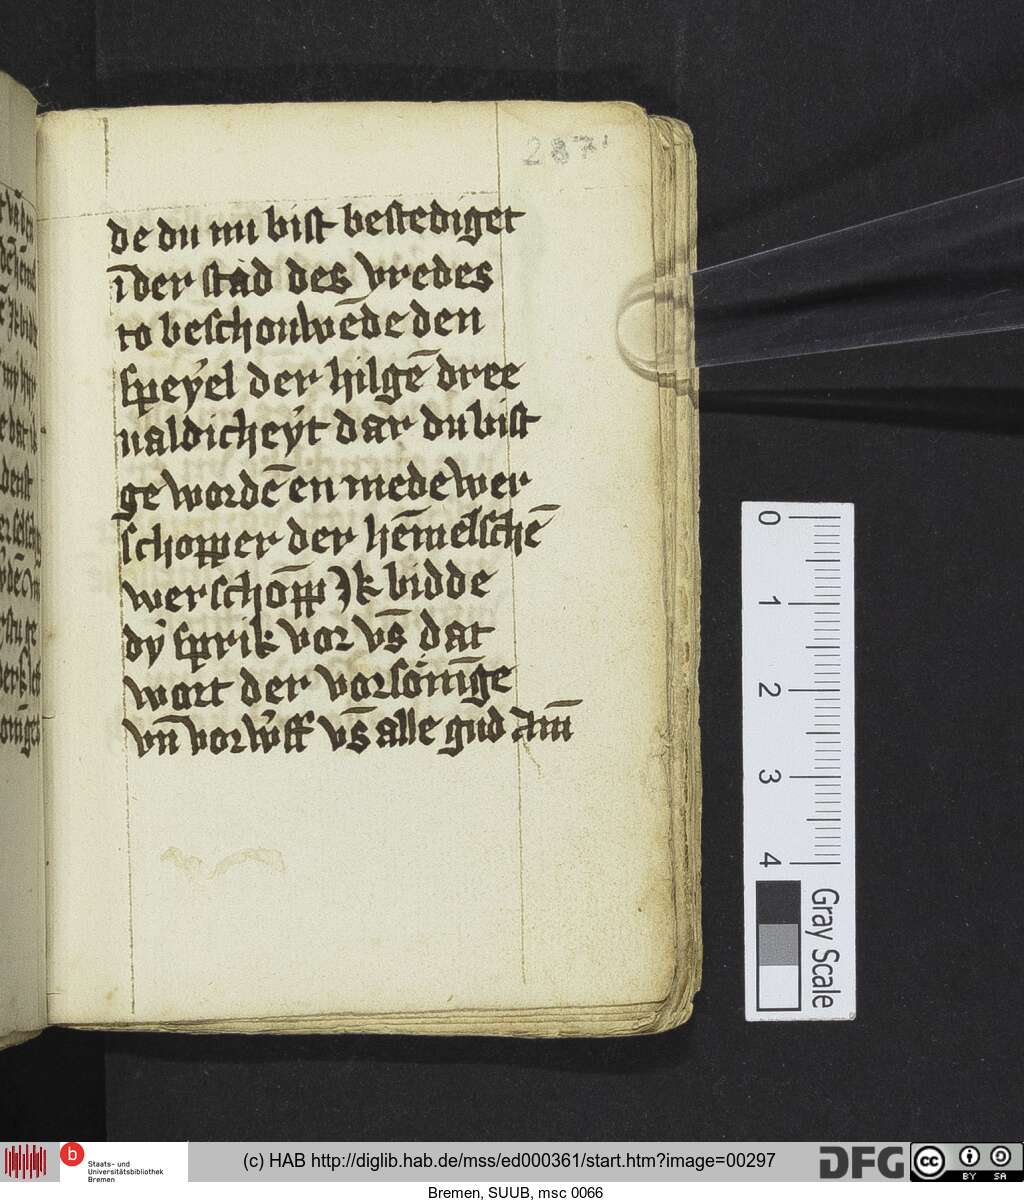 287
de du nu bist bestediget
īder stad des vredes
to beschouwēde den
speÿel der hilgē dree
ualdicheÿt dar du bist
ge wordē en medewer
schopper der hēmelschē
werschōpp Ik bidde
dÿ sprik vor vs̄ dat
wort der vorsönīge
vn̄ vorwff vs̄ alle gud Am̄
0
1
2
3
4
Gray Scale
b
Staats- und
Universitätsbibliothek
Bremen
(c) HAB http://diglib.hab.de/mss/ed000361/start.htm?image=00297
DFG
cc
BY SA
Bremen, SUUB, msc 0066